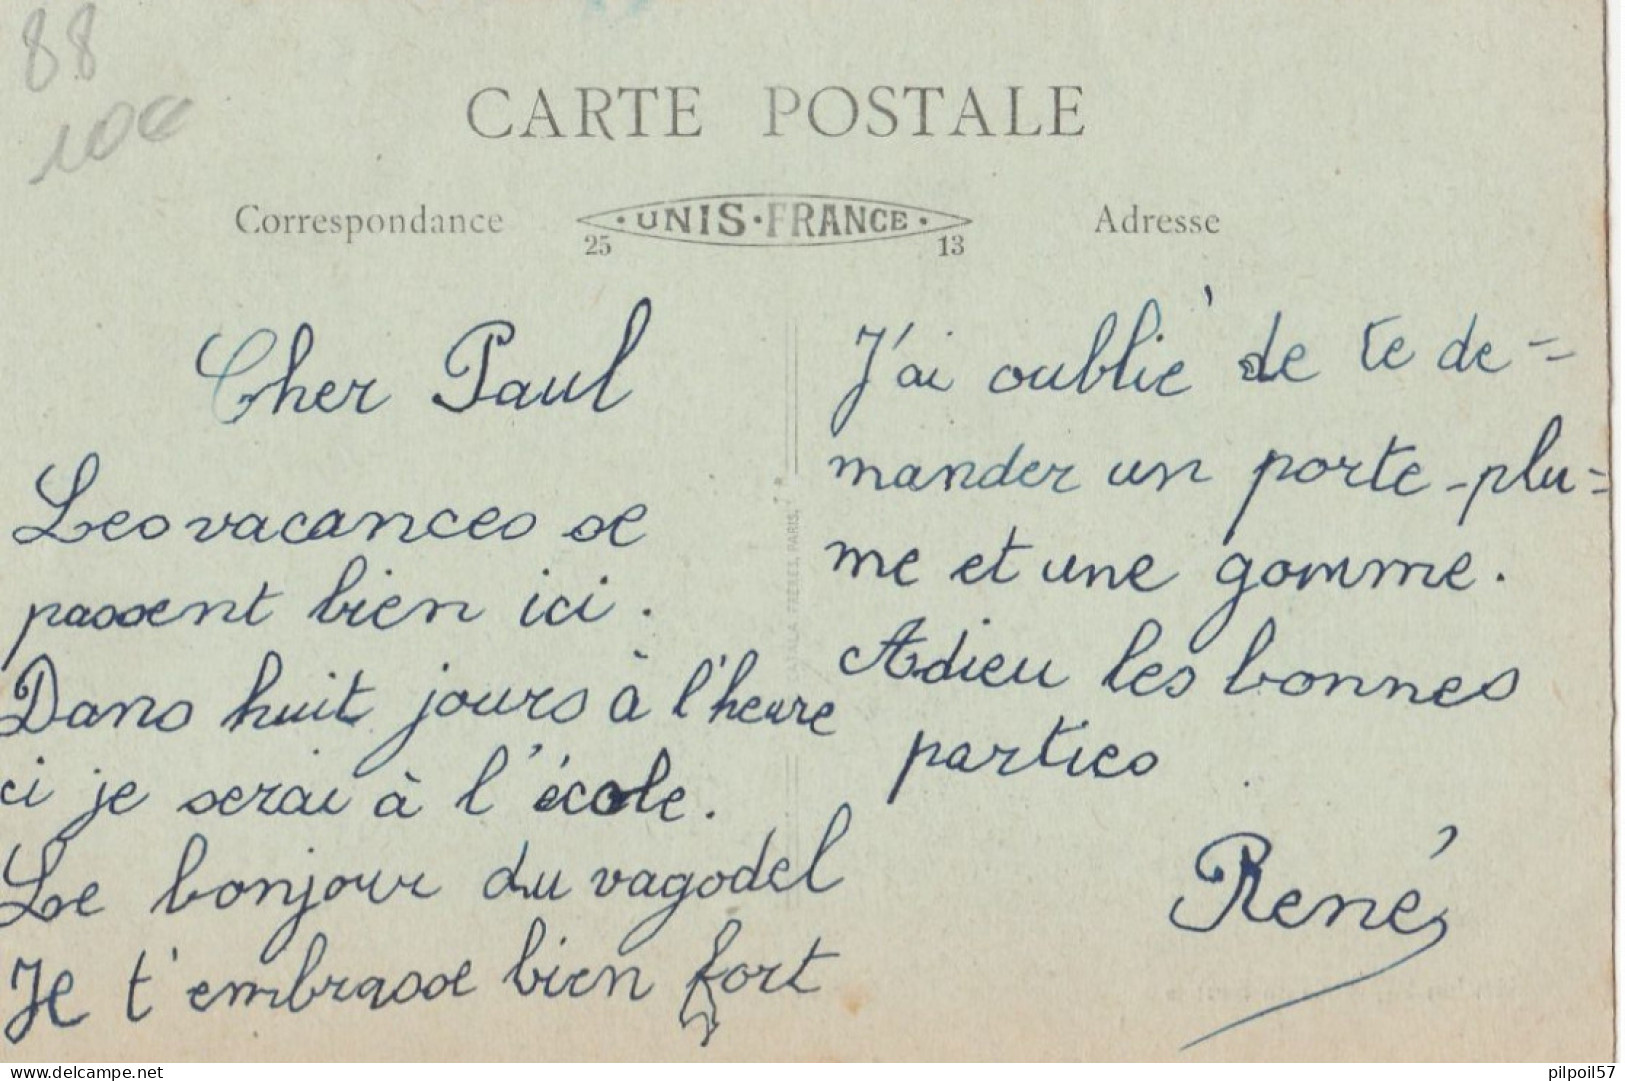 88
10€
CARTE POSTALE
Correspondance
·UNIS·FRANCE·
25 13
Adresse
Cher Paul
Les vacances se
passent bien ici.
Dans huit jours à l'heure
ci je serai à l'école.
Le bonjour du vagodel
Je t'embrasse bien fort
CATALA FRÈRES, PARIS.
J'ai oublié de te de=
mander un porte-plu=
me et une gomme.
Adieu les bonnes
parties
René
www.delcampe.net
pilpoil57